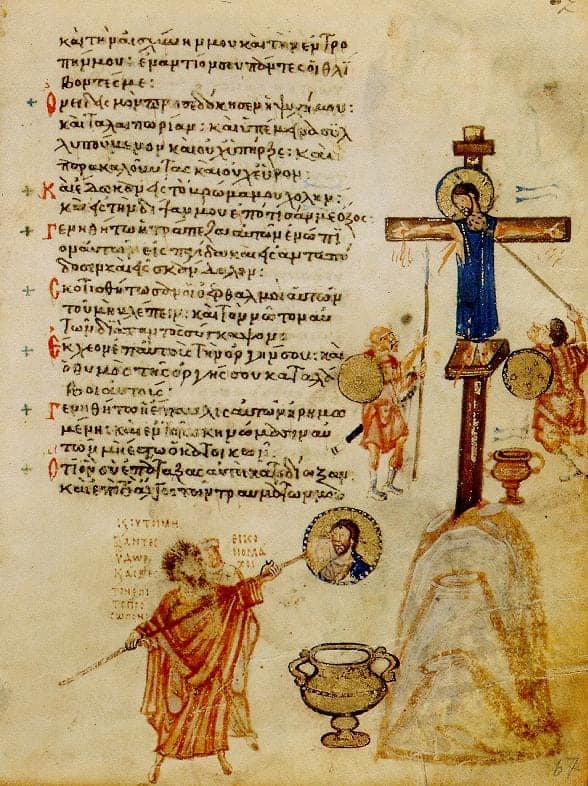 καὶ τὴν αἰσχύνην μου καὶ τὴν ἐντρο
πήν μου: ἐναντίον σου πάντες οἱ θλί
βοντές με:
Ὀνειδισμὸν προσεδόκησεν ἡ ψυχή μου:
καὶ ταλαιπωρίαν: καὶ ὑπέμεινα συλ
λυπούμενον καὶ οὐχ ὑπῆρξε: καὶ
παρακαλοῦντας καὶ οὐχ εὗρον:
Καὶ ἔδωκαν εἰς τὸ βρῶμα μου χολὴν:
καὶ εἰς τὴν δίψαν μου ἐπότισάν με ὄξος:
Γενηθήτω ἡ τράπεζα αὐτῶν ἐνώπι
ον αὐτῶν εἰς παγίδα καὶ εἰς ἀνταπό
δοσιν καὶ εἰς σκάνδαλον:
Σκοτισθήτωσαν οἱ ὀφθαλμοὶ αὐτῶν
τοῦ μὴ βλέπειν: καὶ τὸν νῶτον αὐ
τῶν διὰ παντὸς σύγκαμψον:
Ἔκχεον ἐπ αὐτοὺς τὴν ὀργήν σου: καὶ
ὁ θυμὸς τῆς ὀργῆς σου καταλά
βοι αὐτούς:
Γενηθήτω ἡ ἔπαυλις αὐτῶν ἠρημω
μένη: καὶ ἐν τοῖς σκηνώμασιν αὐ
τῶν μὴ ἔστω ὁ κατοικῶν:
Ὅτι ὃν σὺ ἐπάταξας αὐτοὶ κατεδίωξαν
καὶ ἐπὶ τὸ ἄλγος τῶν τραυμάτων μου
εικο
νομα
χοι
67